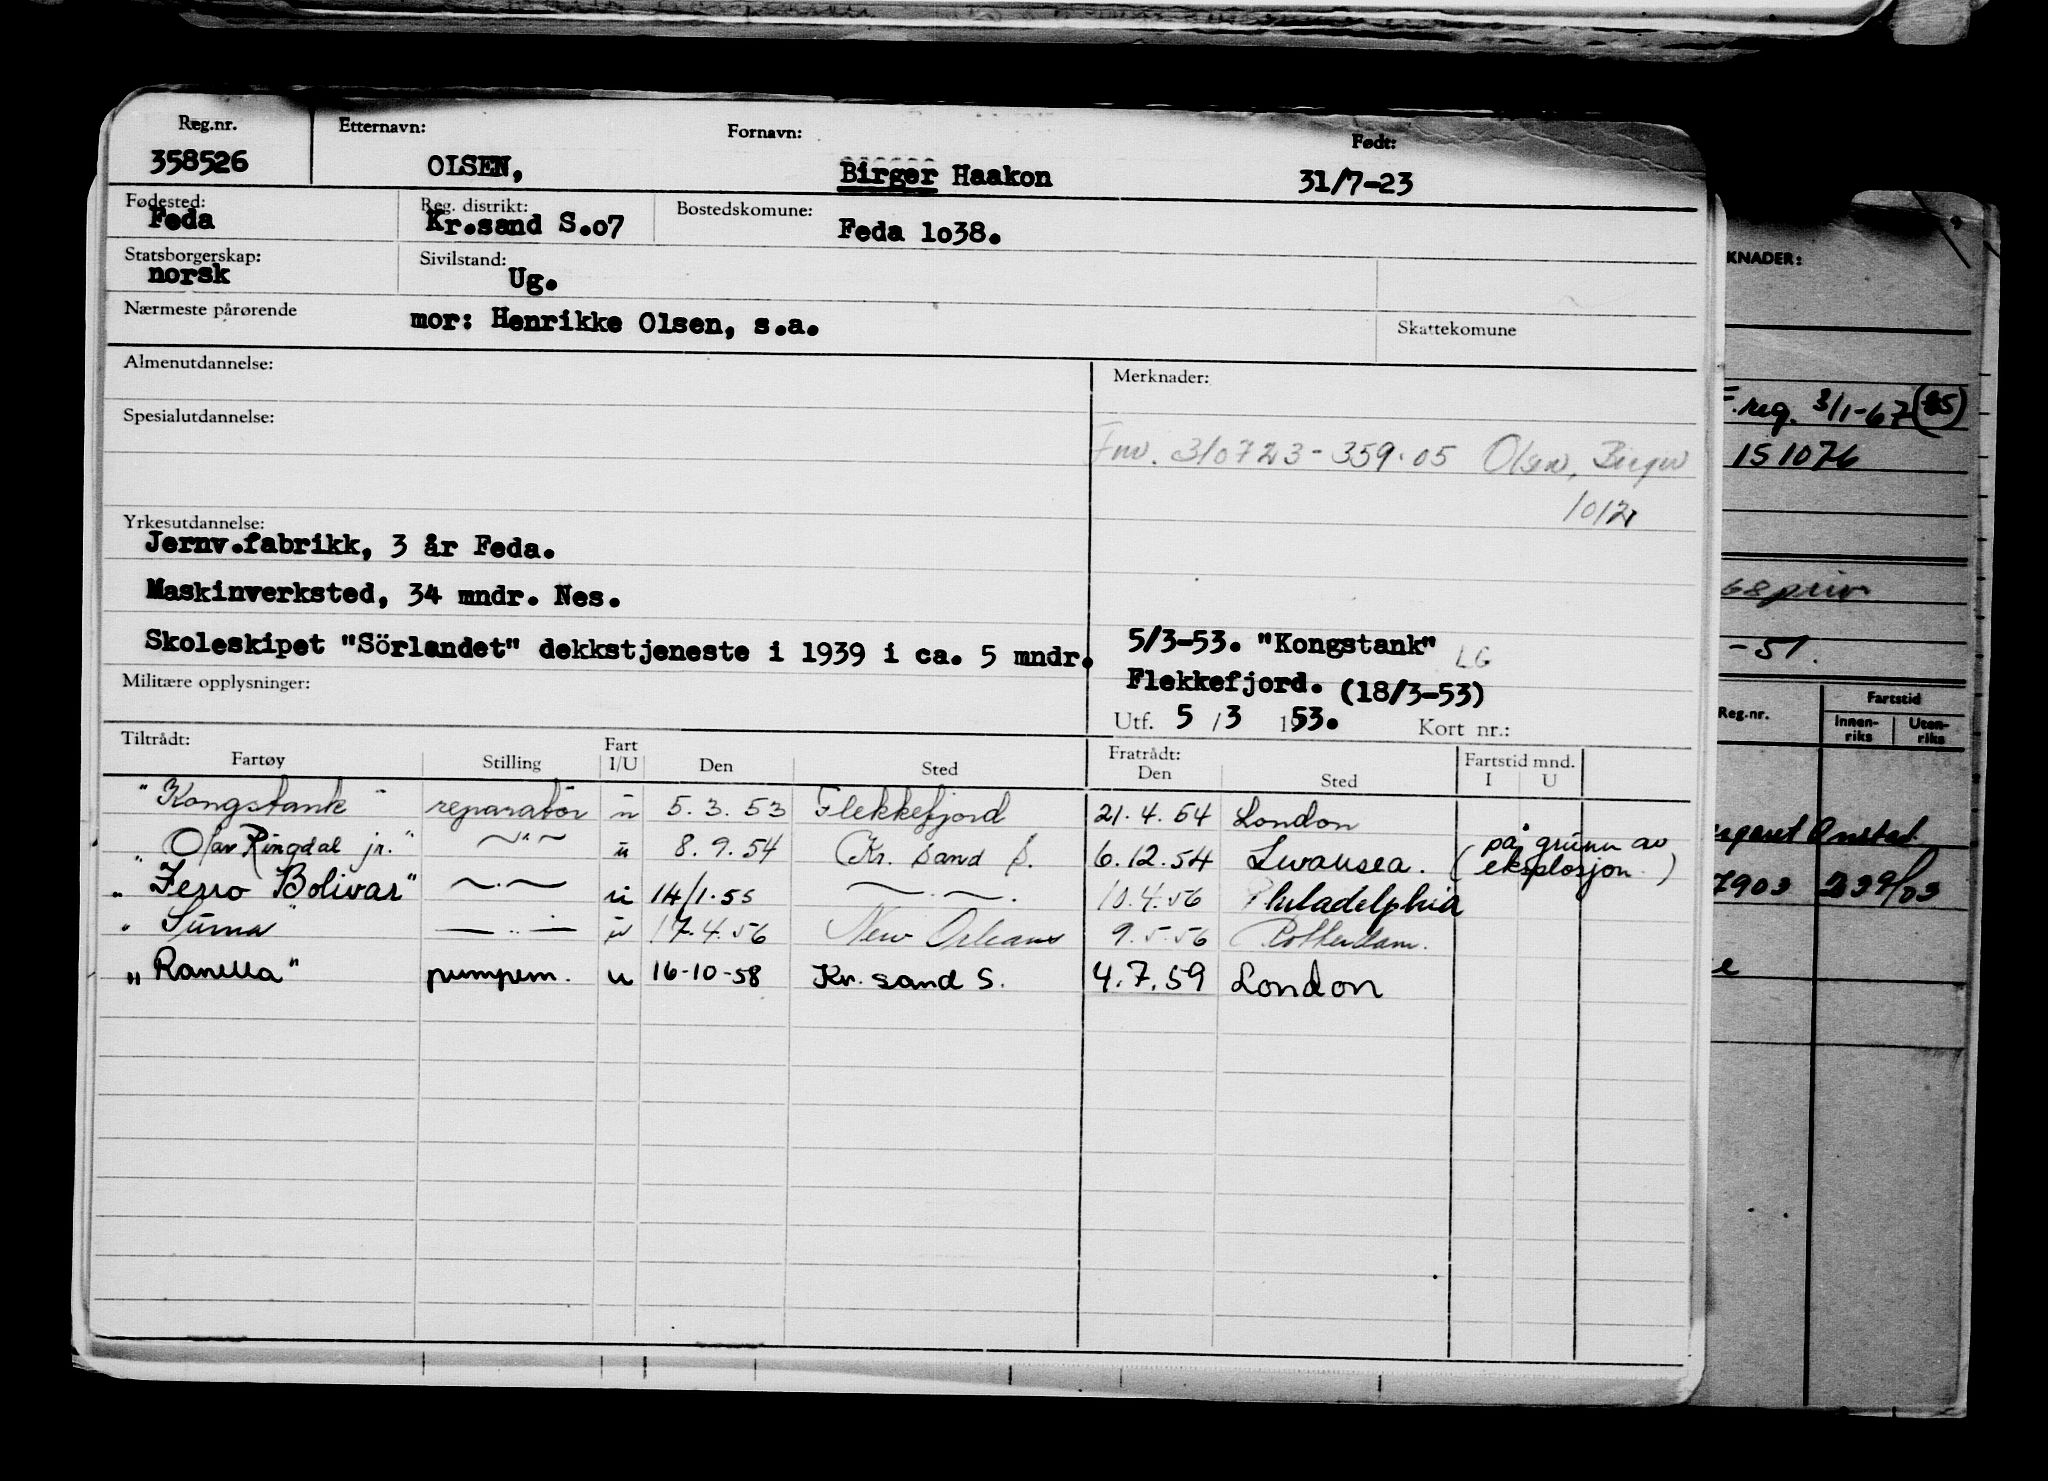 Reg.nr. Etternavn: Fornavn: Født:
358526 OLSEN, Birger Haakon 31/7-23
Fødested: Reg. distrikt: Bostedskomune:
Feda Kr.sand S.o7 Feda 1o38.
Statsborgerskap: Sivilstand:
norsk Ug.
Nærmeste pårørende mor: Henrikke Olsen, s.a. Skattekomune
Almenutdannelse: Merknader:
Spesialutdannelse:
310723-359.05 Olsen, Birger
1012
Yrkesutdannelse:
Jernv.fabrikk, 3 år Feda.
Maskinverksted, 34 mndr. Nes.
Skoleskipet "Sörlandet" dekkstjeneste i 1939 i ca. 5 mndr. 5/3-53. "Kongstank" LG
Militære opplysninger: Flekkefjord. (18/3-53)
Utf. 5 /3 153. Kort nr.:
Tiltrådt: Fart Fratrådt: Fartstid mnd.
Fartøy Stilling I/U Den Sted Den Sted I U
"Kongstank" reparatör u 5.3.53 Flekkefjord 21.4.54 London
"Olav Ringdal jr." —"— u 8.9.54 Kr. sand S. 6.12.54 Swansea. (på grunn av eksplosjon.)
"Ferro Bolivar" —"— u 14/1.55 —"— 10.4.56 Philadelphia
"Suma" —"— u 17.4.56 New Orleans 9.5.56 Rotterdam.
"Ranella" pumpem. u 16-10-58 Kr. sand S. 4.7.59 London
KNADER:
F.reg. 3/1-67
151076
68 priv
-51.
Reg.nr. Fartstid
Innen-riks Uten-riks
7903 239/03